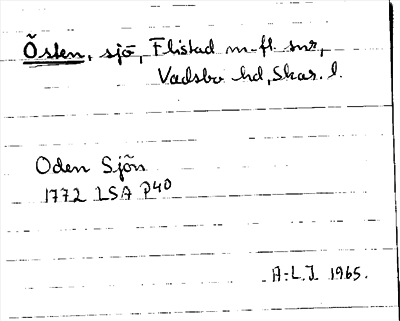 Östen, sjö, Flistad m. fl. snr,
Vadsbo hd, Skar. l.
Oden Sjön
1772 LSA P40
A.L.J. 1965.